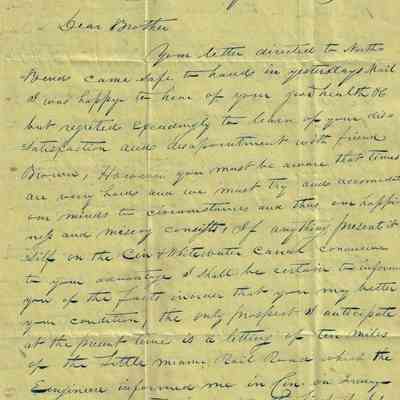 Dear Brother
Your letter directed to North
Bend came safe to hand in yesterdays Mail
I was happy to hear of your good health &c
but regreted exceedingly to learn of your diss
satisfaction and disapointment with friend
Brown, However you must be aware that times
are very hard and we must try and accomodate
our minds to circumstances and thus our happi
ness and mercy consists, If anything present it
self on the Cin & Whitewater Canal
to your advantage I shall be certain to inform
you of the facts inorder that you may better
your condition, the only prospect I anticipate
at the present time is a letting of ten miles
of the Little Miami Rail Road which the
Engineer informed me in Cin. on